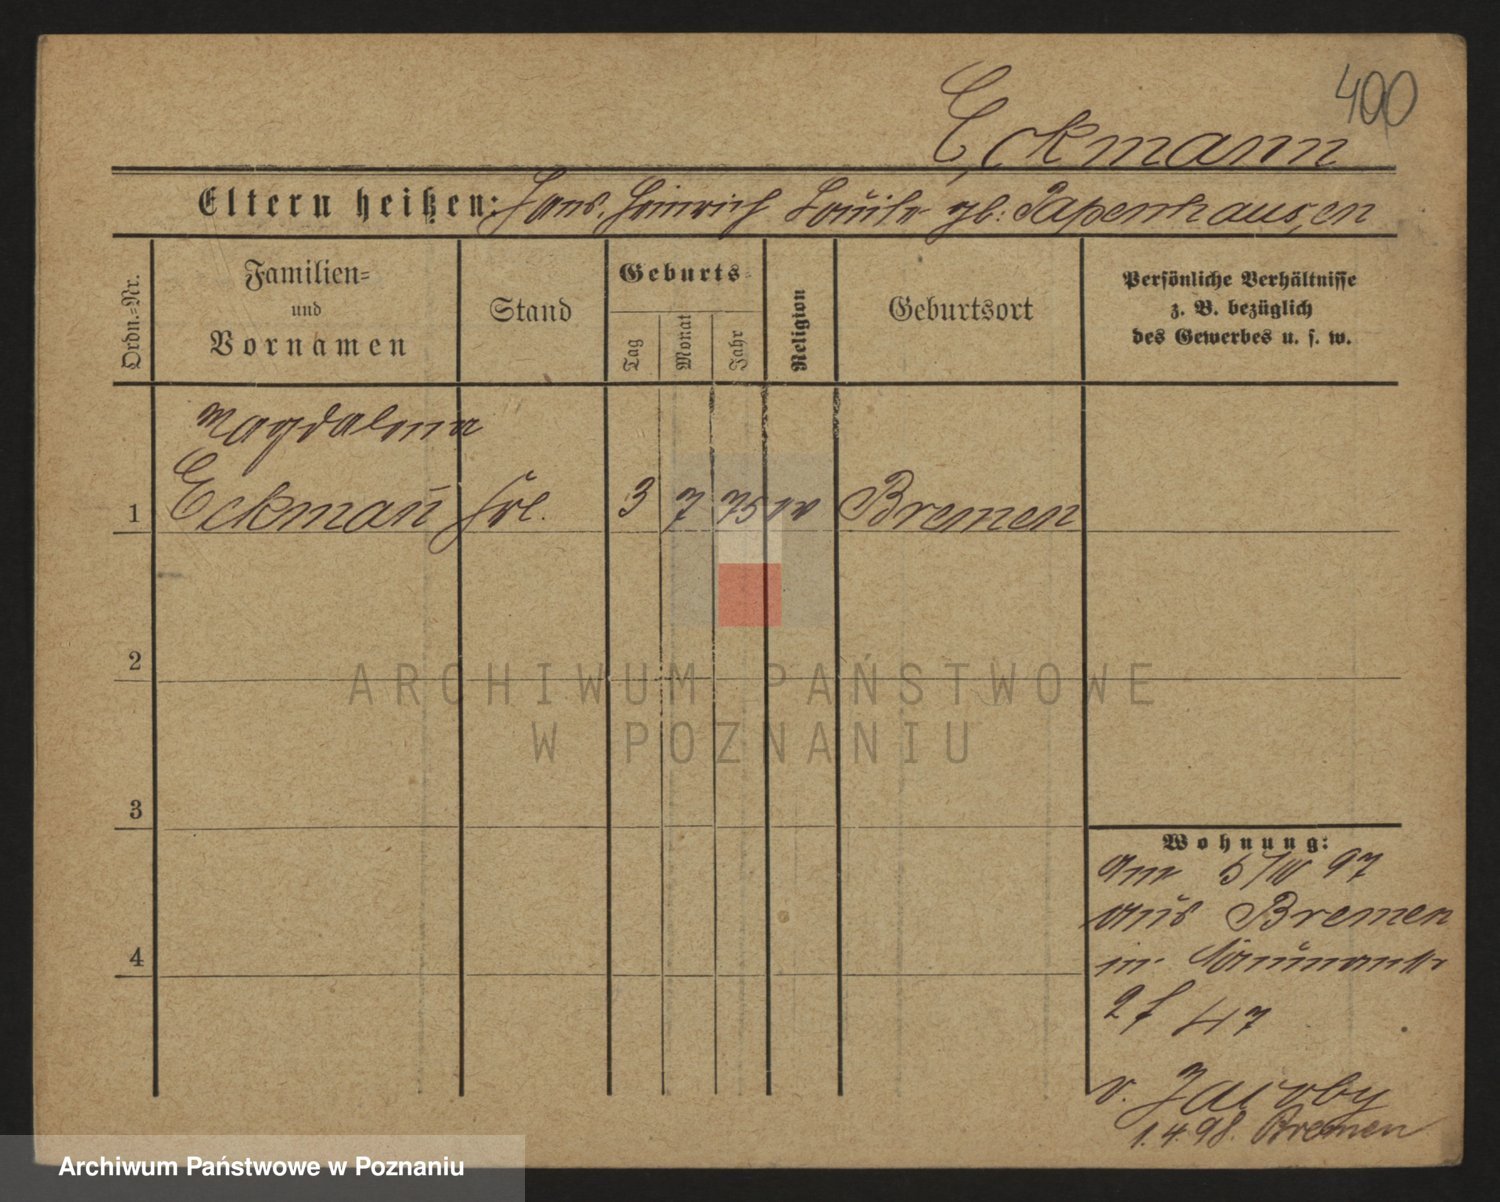 400
Eckmann
Eltern heißen: Hans. Heinrich Louise gb: Papenhausen
Ordn.=Nr.
Familien=
und
Vornamen
Stand
Geburts=
Tag
Monat
Jahr
Religion
Geburtsort
Persönliche Verhältnisse
z. B. bezüglich
des Gewerbes u. s. w.
Magdalena
1 Eckmañ Frl. 3 7 75 ev Bremen
2
ARCHIWUM PAŃSTWOWE
W POZNANIU
3
Wohnung:
am 5/IV 97
aus Bremen
in
4
47
v. Jacoby
1.4.98. Bremen
Archiwum Państwowe w Poznaniu